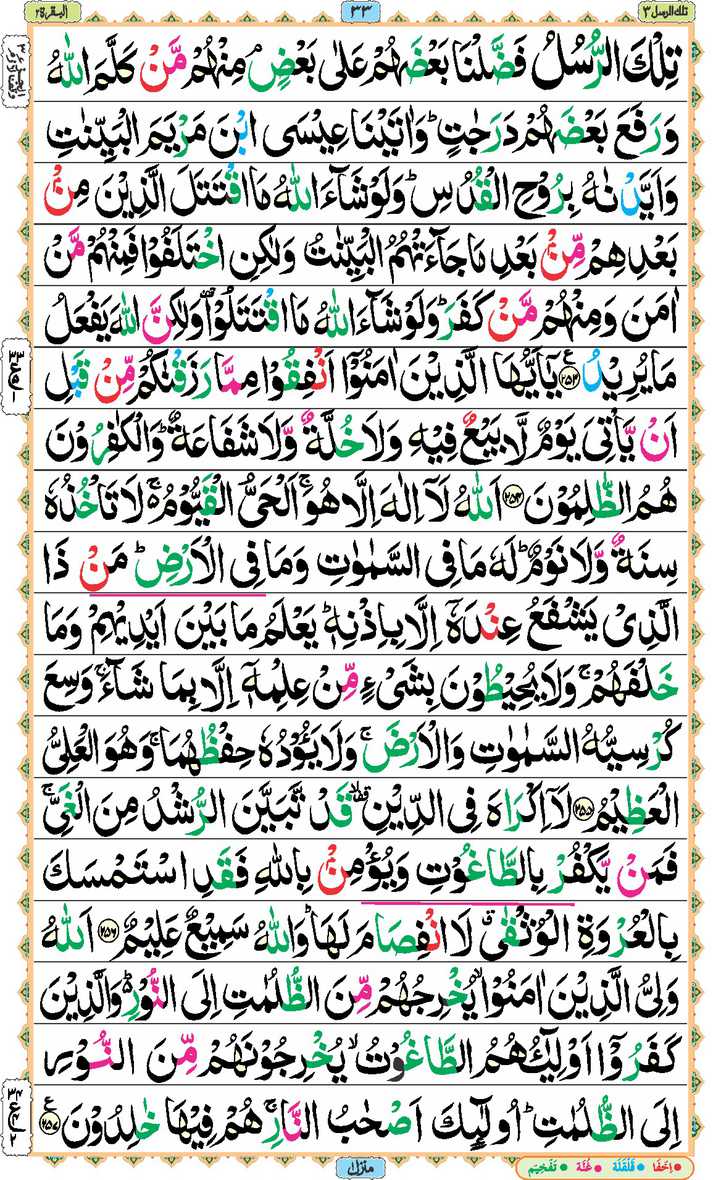 تلك الرسل ٣
٣٣
البقرة ٢
تِلْكَ الرُّسُلُ فَضَّلْنَا بَعْضَهُمْ عَلٰى بَعْضٍ ۘ مِنْهُمْ مَّنْ كَلَّمَ اللّٰهُ
وَرَفَعَ بَعْضَهُمْ دَرَجٰتٍ ؕ وَاٰتَيْنَا عِيْسَى ابْنَ مَرْيَمَ الْبَيِّنٰتِ
وَاَيَّدْنٰهُ بِرُوْحِ الْقُدُسِ ؕ وَلَوْ شَآءَ اللّٰهُ مَا اقْتَتَلَ الَّذِيْنَ مِنْۢ
بَعْدِهِمْ مِّنْۢ بَعْدِ مَا جَآءَتْهُمُ الْبَيِّنٰتُ وَلٰكِنِ اخْتَلَفُوْا فَمِنْهُمْ مَّنْ
اٰمَنَ وَمِنْهُمْ مَّنْ كَفَرَ ؕ وَلَوْ شَآءَ اللّٰهُ مَا اقْتَتَلُوْا ۫ وَلٰكِنَّ اللّٰهَ يَفْعَلُ
مَا يُرِيْدُ ﴿۲۵۳﴾ يٰۤاَيُّهَا الَّذِيْنَ اٰمَنُوْۤا اَنْفِقُوْا مِمَّا رَزَقْنٰكُمْ مِّنْ قَبْلِ
اَنْ يَّاْتِىَ يَوْمٌ لَّا بَيْعٌ فِيْهِ وَلَا خُلَّةٌ وَّلَا شَفَاعَةٌ ؕ وَالْكٰفِرُوْنَ
هُمُ الظّٰلِمُوْنَ ﴿۲۵۴﴾ اَللّٰهُ لَاۤ اِلٰهَ اِلَّا هُوَ ۚ اَلْحَىُّ الْقَيُّوْمُ ۚ لَا تَاْخُذُهٗ
سِنَةٌ وَّلَا نَوْمٌ ؕ لَهٗ مَا فِى السَّمٰوٰتِ وَمَا فِى الْاَرْضِ ؕ مَنْ ذَا
الَّذِىْ يَشْفَعُ عِنْدَهٗۤ اِلَّا بِاِذْنِهٖ ؕ يَعْلَمُ مَا بَيْنَ اَيْدِيْهِمْ وَمَا
خَلْفَهُمْ ۚ وَلَا يُحِيْطُوْنَ بِشَىْءٍ مِّنْ عِلْمِهٖۤ اِلَّا بِمَا شَآءَ ۚ وَسِعَ
كُرْسِيُّهُ السَّمٰوٰتِ وَالْاَرْضَ ۚ وَلَا يَـُٔوْدُهٗ حِفْظُهُمَا ۚ وَهُوَ الْعَلِىُّ
الْعَظِيْمُ ﴿۲۵۵﴾ لَاۤ اِكْرَاهَ فِى الدِّيْنِ ۙ قَدْ تَّبَيَّنَ الرُّشْدُ مِنَ الْغَىِّ ۚ
فَمَنْ يَّكْفُرْ بِالطَّاغُوْتِ وَيُؤْمِنْۢ بِاللّٰهِ فَقَدِ اسْتَمْسَكَ
بِالْعُرْوَةِ الْوُثْقٰى ۗ لَا انْفِصَامَ لَهَا ؕ وَاللّٰهُ سَمِيْعٌ عَلِيْمٌ ﴿۲۵۶﴾ اَللّٰهُ
وَلِىُّ الَّذِيْنَ اٰمَنُوْا ۙ يُخْرِجُهُمْ مِّنَ الظُّلُمٰتِ اِلَى النُّوْرِ ؕ وَالَّذِيْنَ
كَفَرُوْۤا اَوْلِيٰٓـُٔهُمُ الطَّاغُوْتُ ۙ يُخْرِجُوْنَهُمْ مِّنَ النُّوْرِ
اِلَى الظُّلُمٰتِ ؕ اُولٰٓئِكَ اَصْحٰبُ النَّارِ ۚ هُمْ فِيْهَا خٰلِدُوْنَ ﴿۲۵۷﴾
منزل ١
اِخْفَا • قَلْقَلَة • غُنَّة • تَفْخِيْم •